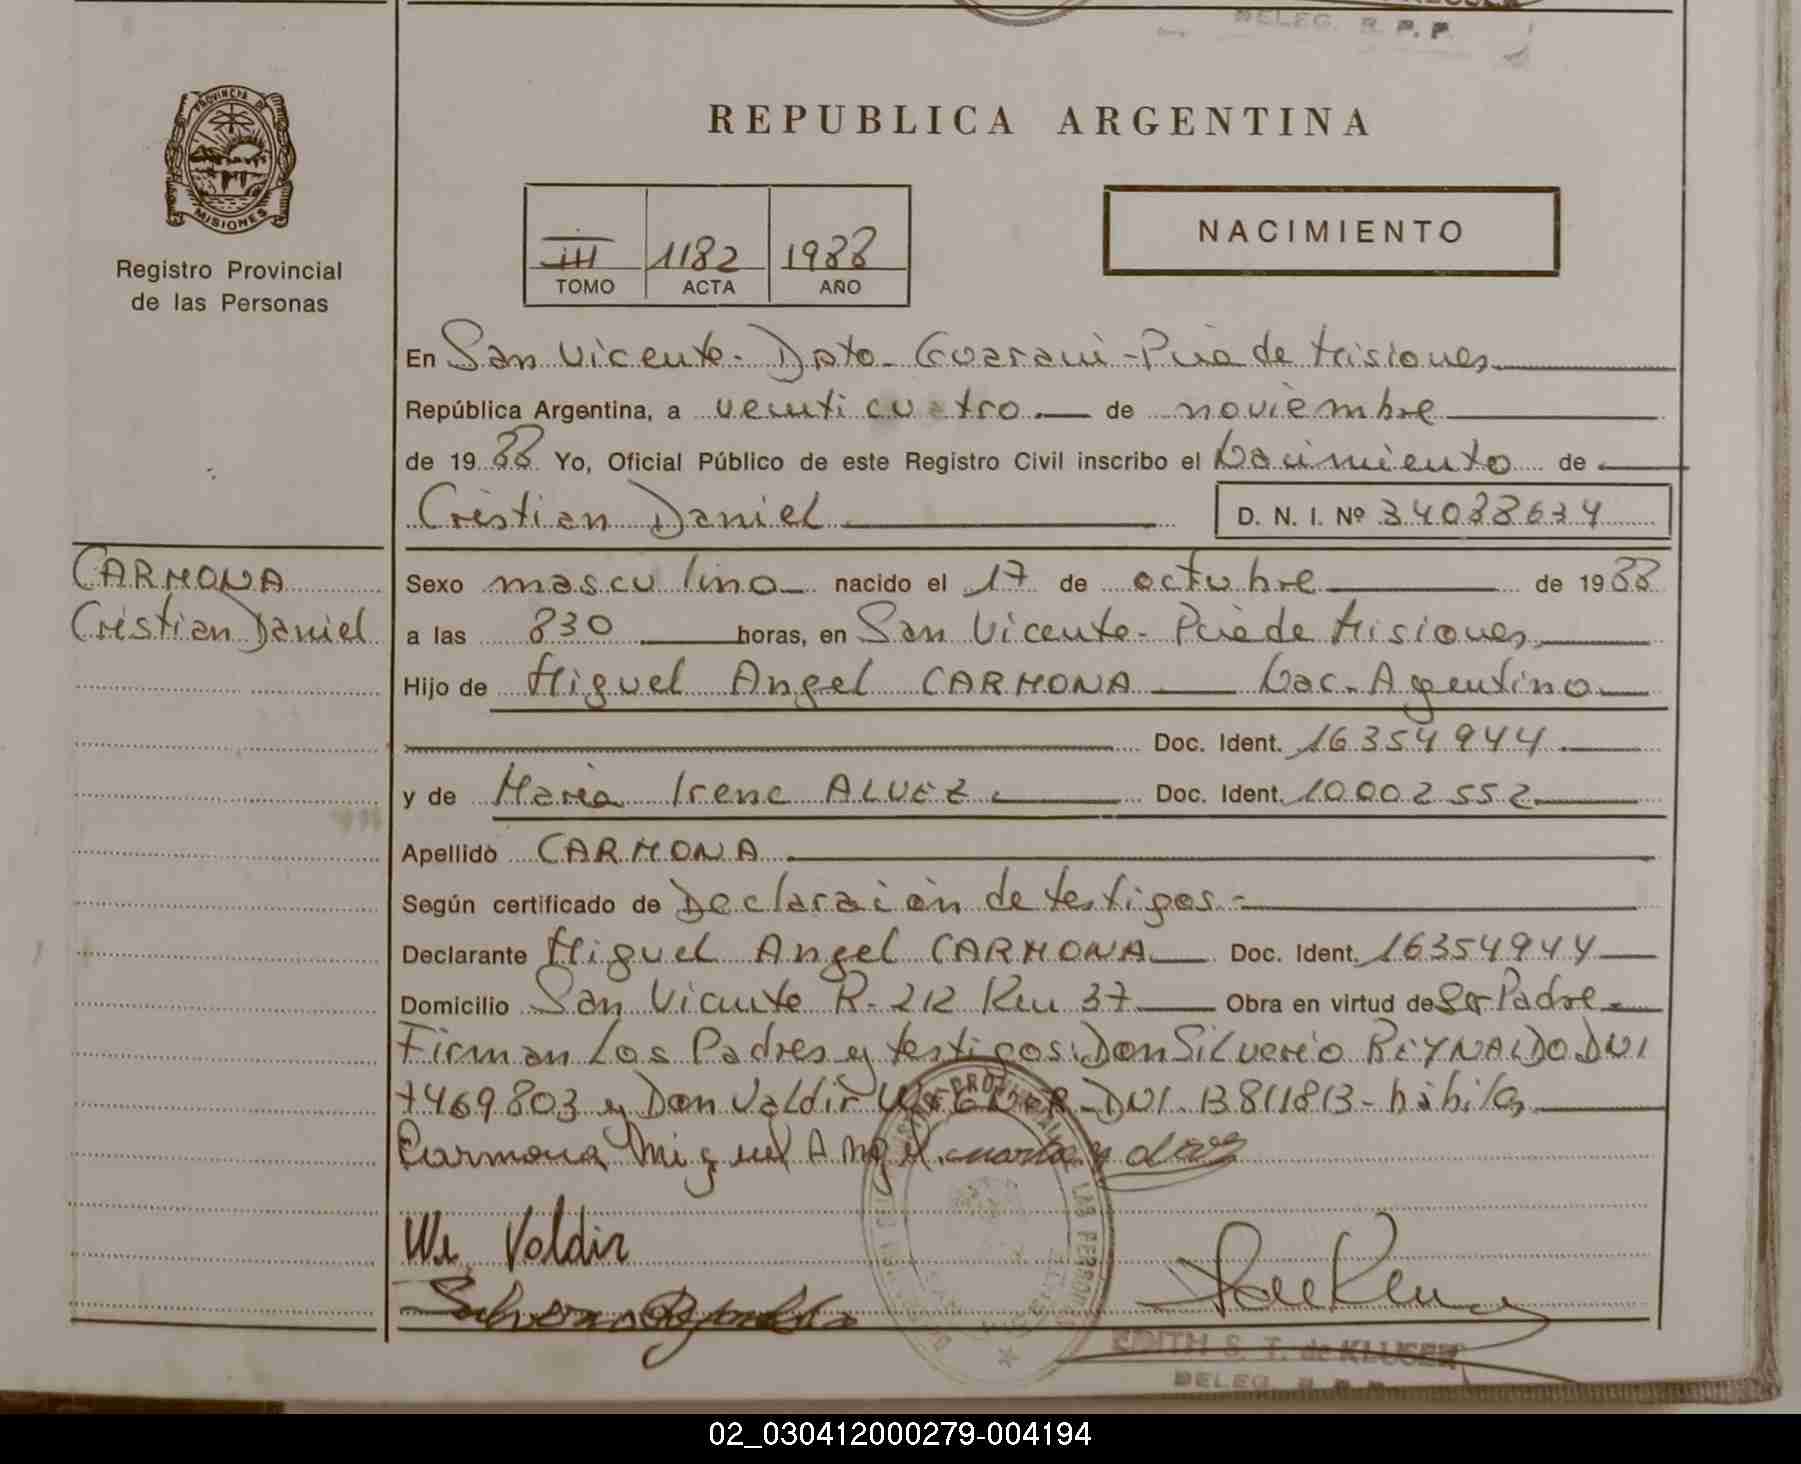 DELEG. R. P. P.
PROVINCIA DE
MISIONES
Registro Provincial
de las Personas
REPUBLICA ARGENTINA
III 1182 1988
TOMO ACTA AÑO
NACIMIENTO
En San Vicente - Dpto - Guarani - Pcia de Misiones
República Argentina, a veinticuatro de noviembre
de 1988 Yo, Oficial Público de este Registro Civil inscribo el Nacimiento de
Cristian Daniel D. N. I. Nº 34088634
CARMONA
Cristian Daniel
Sexo masculino nacido el 17 de octubre de 1988
a las 830 horas, en San Vicente - Pcia de Misiones
Hijo de Miguel Angel CARMONA Nac. Argentino
Doc. Ident. 16354944
y de Maria Irene ALVEZ Doc. Ident. 10002552
Apellido CARMONA
Según certificado de Declaración de testigos -
Declarante Miguel Angel CARMONA Doc. Ident. 16354944
Domicilio San Vicente R. 212 Km 37 Obra en virtud de Ser Padre
Firman Los Padres y testigos: Don Silverio REYNALDO DNI
7469803 y Don Valdir DNI. 13811813 - hábiles
Carmona Miguel Angel
Valdir
EDITH S. T. de KLUSER
DELEG. R. P. P.
02_030412000279-004194